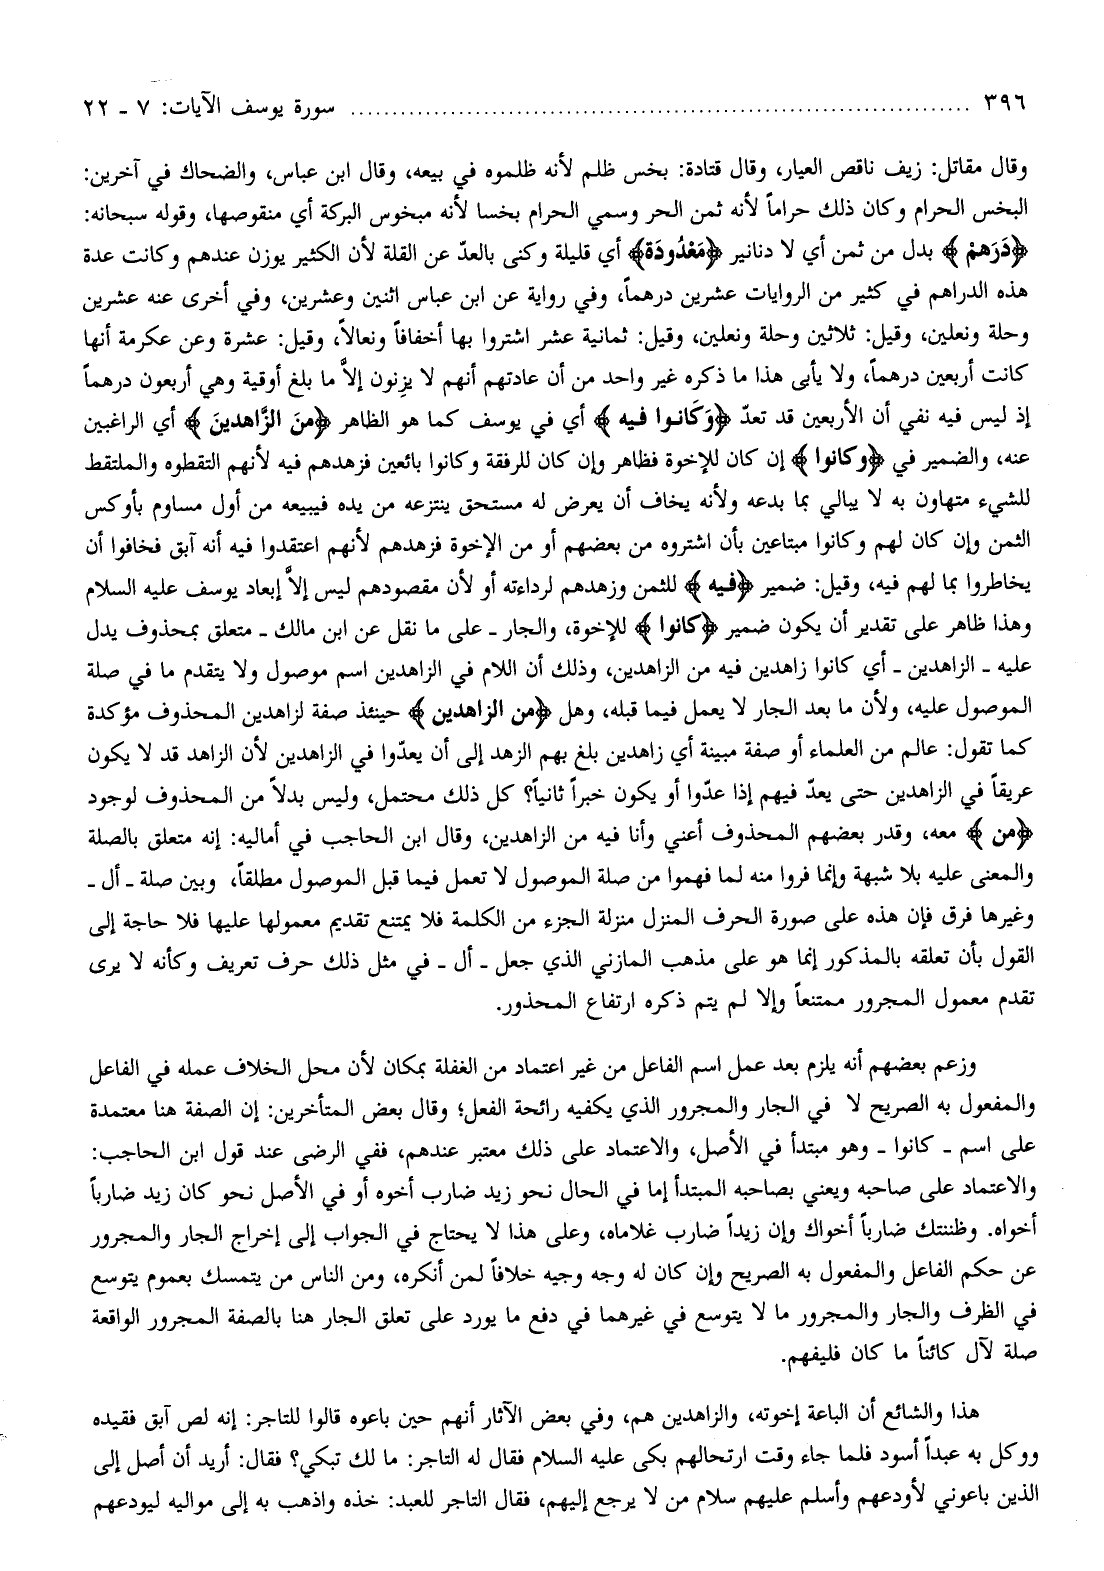 ٣٩٦ ........................................ سورة يوسف الآيات: ٧ ـ ٢٢
وقال مقاتل: زيف ناقص العيار، وقال قتادة: بخس ظلم لأنه ظلموه في بيعه، وقال ابن عباس، والضحاك في آخرين:
البخس الحرام وكان ذلك حراماً لأنه ثمن الحر وسمي الحرام بخسا لأنه مبخوس البركة أي منقوصها، وقوله سبحانه:
﴿دَرَهمْ﴾ بدل من ثمن أي لا دنانير ﴿مَعْدُودَة﴾ أي قليلة وكنى بالعدّ عن القلة لأن الكثير يوزن عندهم وكانت عدة
هذه الدراهم في كثير من الروايات عشرين درهماً، وفي رواية عن ابن عباس اثنين وعشرين، وفي أخرى عنه عشرين
وحلة ونعلين، وقيل: ثلاثين وحلة ونعلين، وقيل: ثمانية عشر اشتروا بها أخفافاً ونعالاً، وقيل: عشرة وعن عكرمة أنها
كانت أربعين درهماً، ولا يأبى هذا ما ذكره غير واحد من أن عادتهم أنهم لا يزِنون إلاَّ ما بلغ أوقية وهي أربعون درهماً
إذ ليس فيه نفي أن الأربعين قد تعدّ ﴿وَكَانوا فيه﴾ أي في يوسف كما هو الظاهر ﴿منَ الزَّاهدينَ﴾ أي الراغبين
عنه، والضمير في ﴿وكانوا﴾ إن كان للإخوة فظاهر وإن كان للرفقة وكانوا بائعين فزهدهم فيه لأنهم التقطوه والملتقط
للشيء متهاون به لا يبالي بما بدعه ولأنه يخاف أن يعرض له مستحق ينتزعه من يده فيبيعه من أول مساوم بأوكس
الثمن وإن كان لهم وكانوا مبتاعين بأن اشتروه من بعضهم أو من الإخوة فزهدهم لأنهم اعتقدوا فيه أنه آبق فخافوا أن
يخاطروا بما لهم فيه، وقيل: ضمير ﴿فيه﴾ للثمن وزهدهم لرداءته أو لأن مقصودهم ليس إلاَّ إبعاد يوسف عليه السلام
وهذا ظاهر على تقدير أن يكون ضمير ﴿كانوا﴾ للإخوة، والجار ـ على ما نقل عن ابن مالك ـ متعلق بمحذوف يدل
عليه ـ الزاهدين ـ أي كانوا زاهدين فيه من الزاهدين، وذلك أن اللام في الزاهدين اسم موصول ولا يتقدم ما في صلة
الموصول عليه، ولأن ما بعد الجار لا يعمل فيما قبله، وهل ﴿من الزاهدين﴾ حينئذ صفة لزاهدين المحذوف مؤكدة
كما تقول: عالم من العلماء أو صفة مبينة أي زاهدين بلغ بهم الزهد إلى أن يعدّوا في الزاهدين لأن الزاهد قد لا يكون
عريقاً في الزاهدين حتى يعدّ فيهم إذا عدّوا أو يكون خبراً ثانياً؟ كل ذلك محتمل، وليس بدلاً من المحذوف لوجود
﴿من﴾ معه، وقدر بعضهم المحذوف أعني وأنا فيه من الزاهدين، وقال ابن الحاجب في أماليه: إنه متعلق بالصلة
والمعنى عليه بلا شبهة وإنما فروا منه لما فهموا من صلة الموصول لا تعمل فيما قبل الموصول مطلقاً، وبين صلة ـ أل ـ
وغيرها فرق فإن هذه على صورة الحرف المنزل منزلة الجزء من الكلمة فلا يمتنع تقديم معمولها عليها فلا حاجة إلى
القول بأن تعلقه بالمذكور إنما هو على مذهب المازني الذي جعل ـ أل ـ في مثل ذلك حرف تعريف وكأنه لا يرى
تقدم معمول المجرور ممتنعاً وإلا لم يتم ذكره ارتفاع المحذور.
وزعم بعضهم أنه يلزم بعد عمل اسم الفاعل من غير اعتماد من الغفلة بمكان لأن محل الخلاف عمله في الفاعل
والمفعول به الصريح لا في الجار والمجرور الذي يكفيه رائحة الفعل؛ وقال بعض المتأخرين: إن الصفة هنا معتمدة
على اسم ـ كانوا ـ وهو مبتدأ في الأصل، والاعتماد على ذلك معتبر عندهم، ففي الرضى عند قول ابن الحاجب:
والاعتماد على صاحبه ويعني بصاحبه المبتدأ إما في الحال نحو زيد ضارب أخوه أو في الأصل نحو كان زيد ضارباً
أخواه. وظننتك ضارباً أخواك وإن زيداً ضارب غلاماه، وعلى هذا لا يحتاج في الجواب إلى إخراج الجار والمجرور
عن حكم الفاعل والمفعول به الصريح وإن كان له وجه وجيه خلافاً لمن أنكره، ومن الناس من يتمسك بعموم يتوسع
في الظرف والجار والمجرور ما لا يتوسع في غيرهما في دفع ما يورد على تعلق الجار هنا بالصفة المجرور الواقعة
صلة لآل كائناً ما كان فليفهم.
هذا والشائع أن الباعة إخوته، والزاهدين هم، وفي بعض الآثار أنهم حين باعوه قالوا للتاجر: إنه لص آبق فقيده
ووكل به عبداً أسود فلما جاء وقت ارتحالهم بكى عليه السلام فقال له التاجر: ما لك تبكي؟ فقال: أريد أن أصل إلى
الذين باعوني لأودعهم وأسلم عليهم سلام من لا يرجع إليهم، فقال التاجر للعبد: خذه واذهب به إلى مواليه ليودعهم